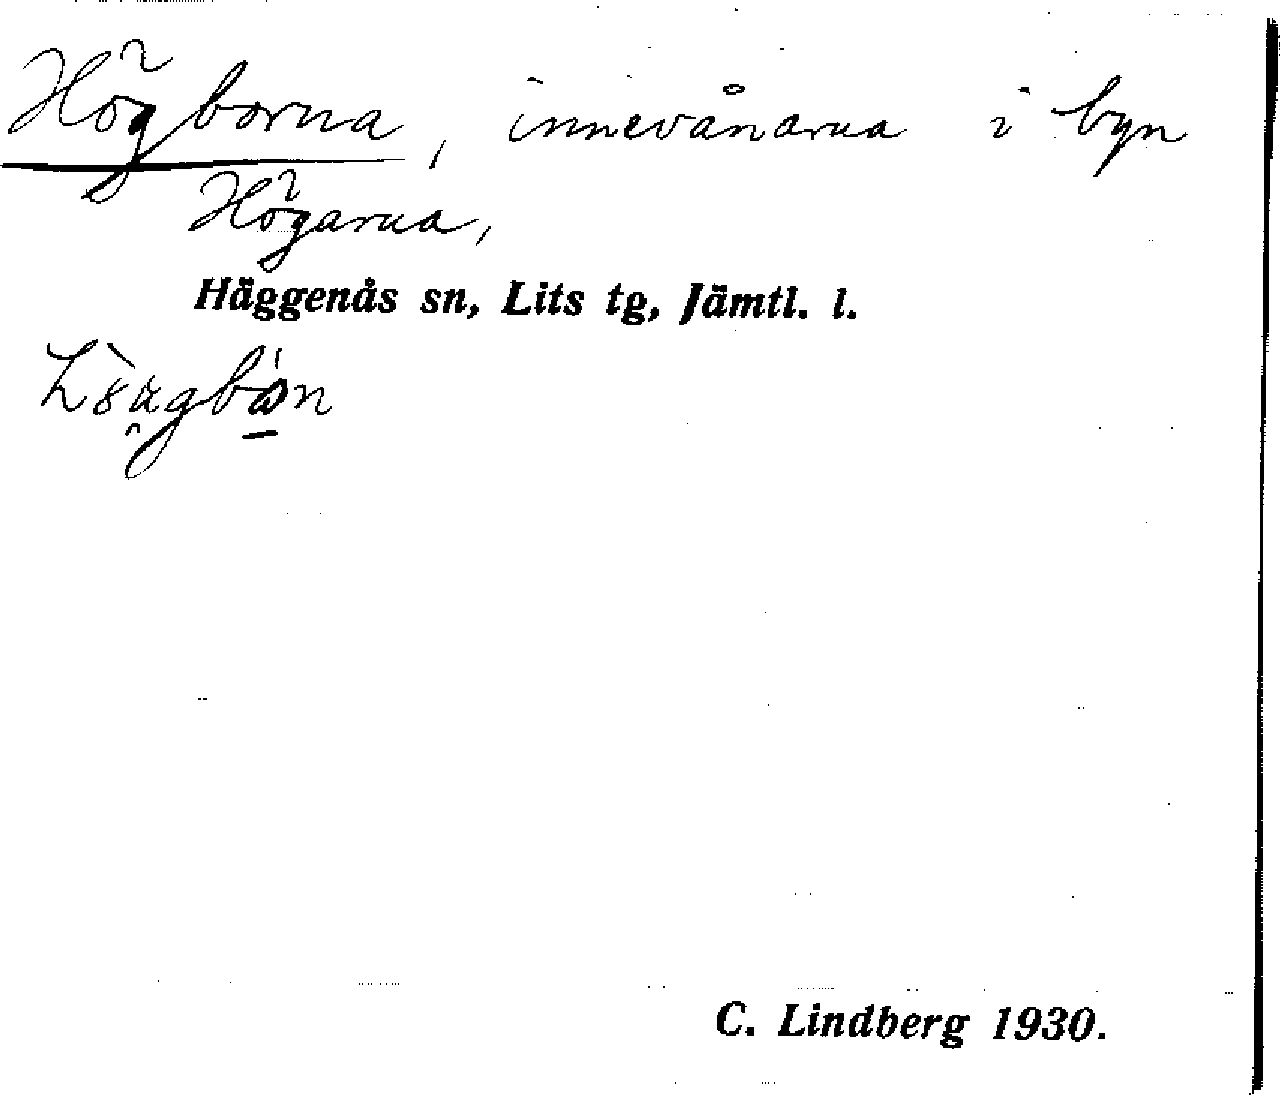 Högborna, innevånarna i byn
Högarna,
Häggenås sn, Lits tg, Jämtl. l.
C. Lindberg 1930.